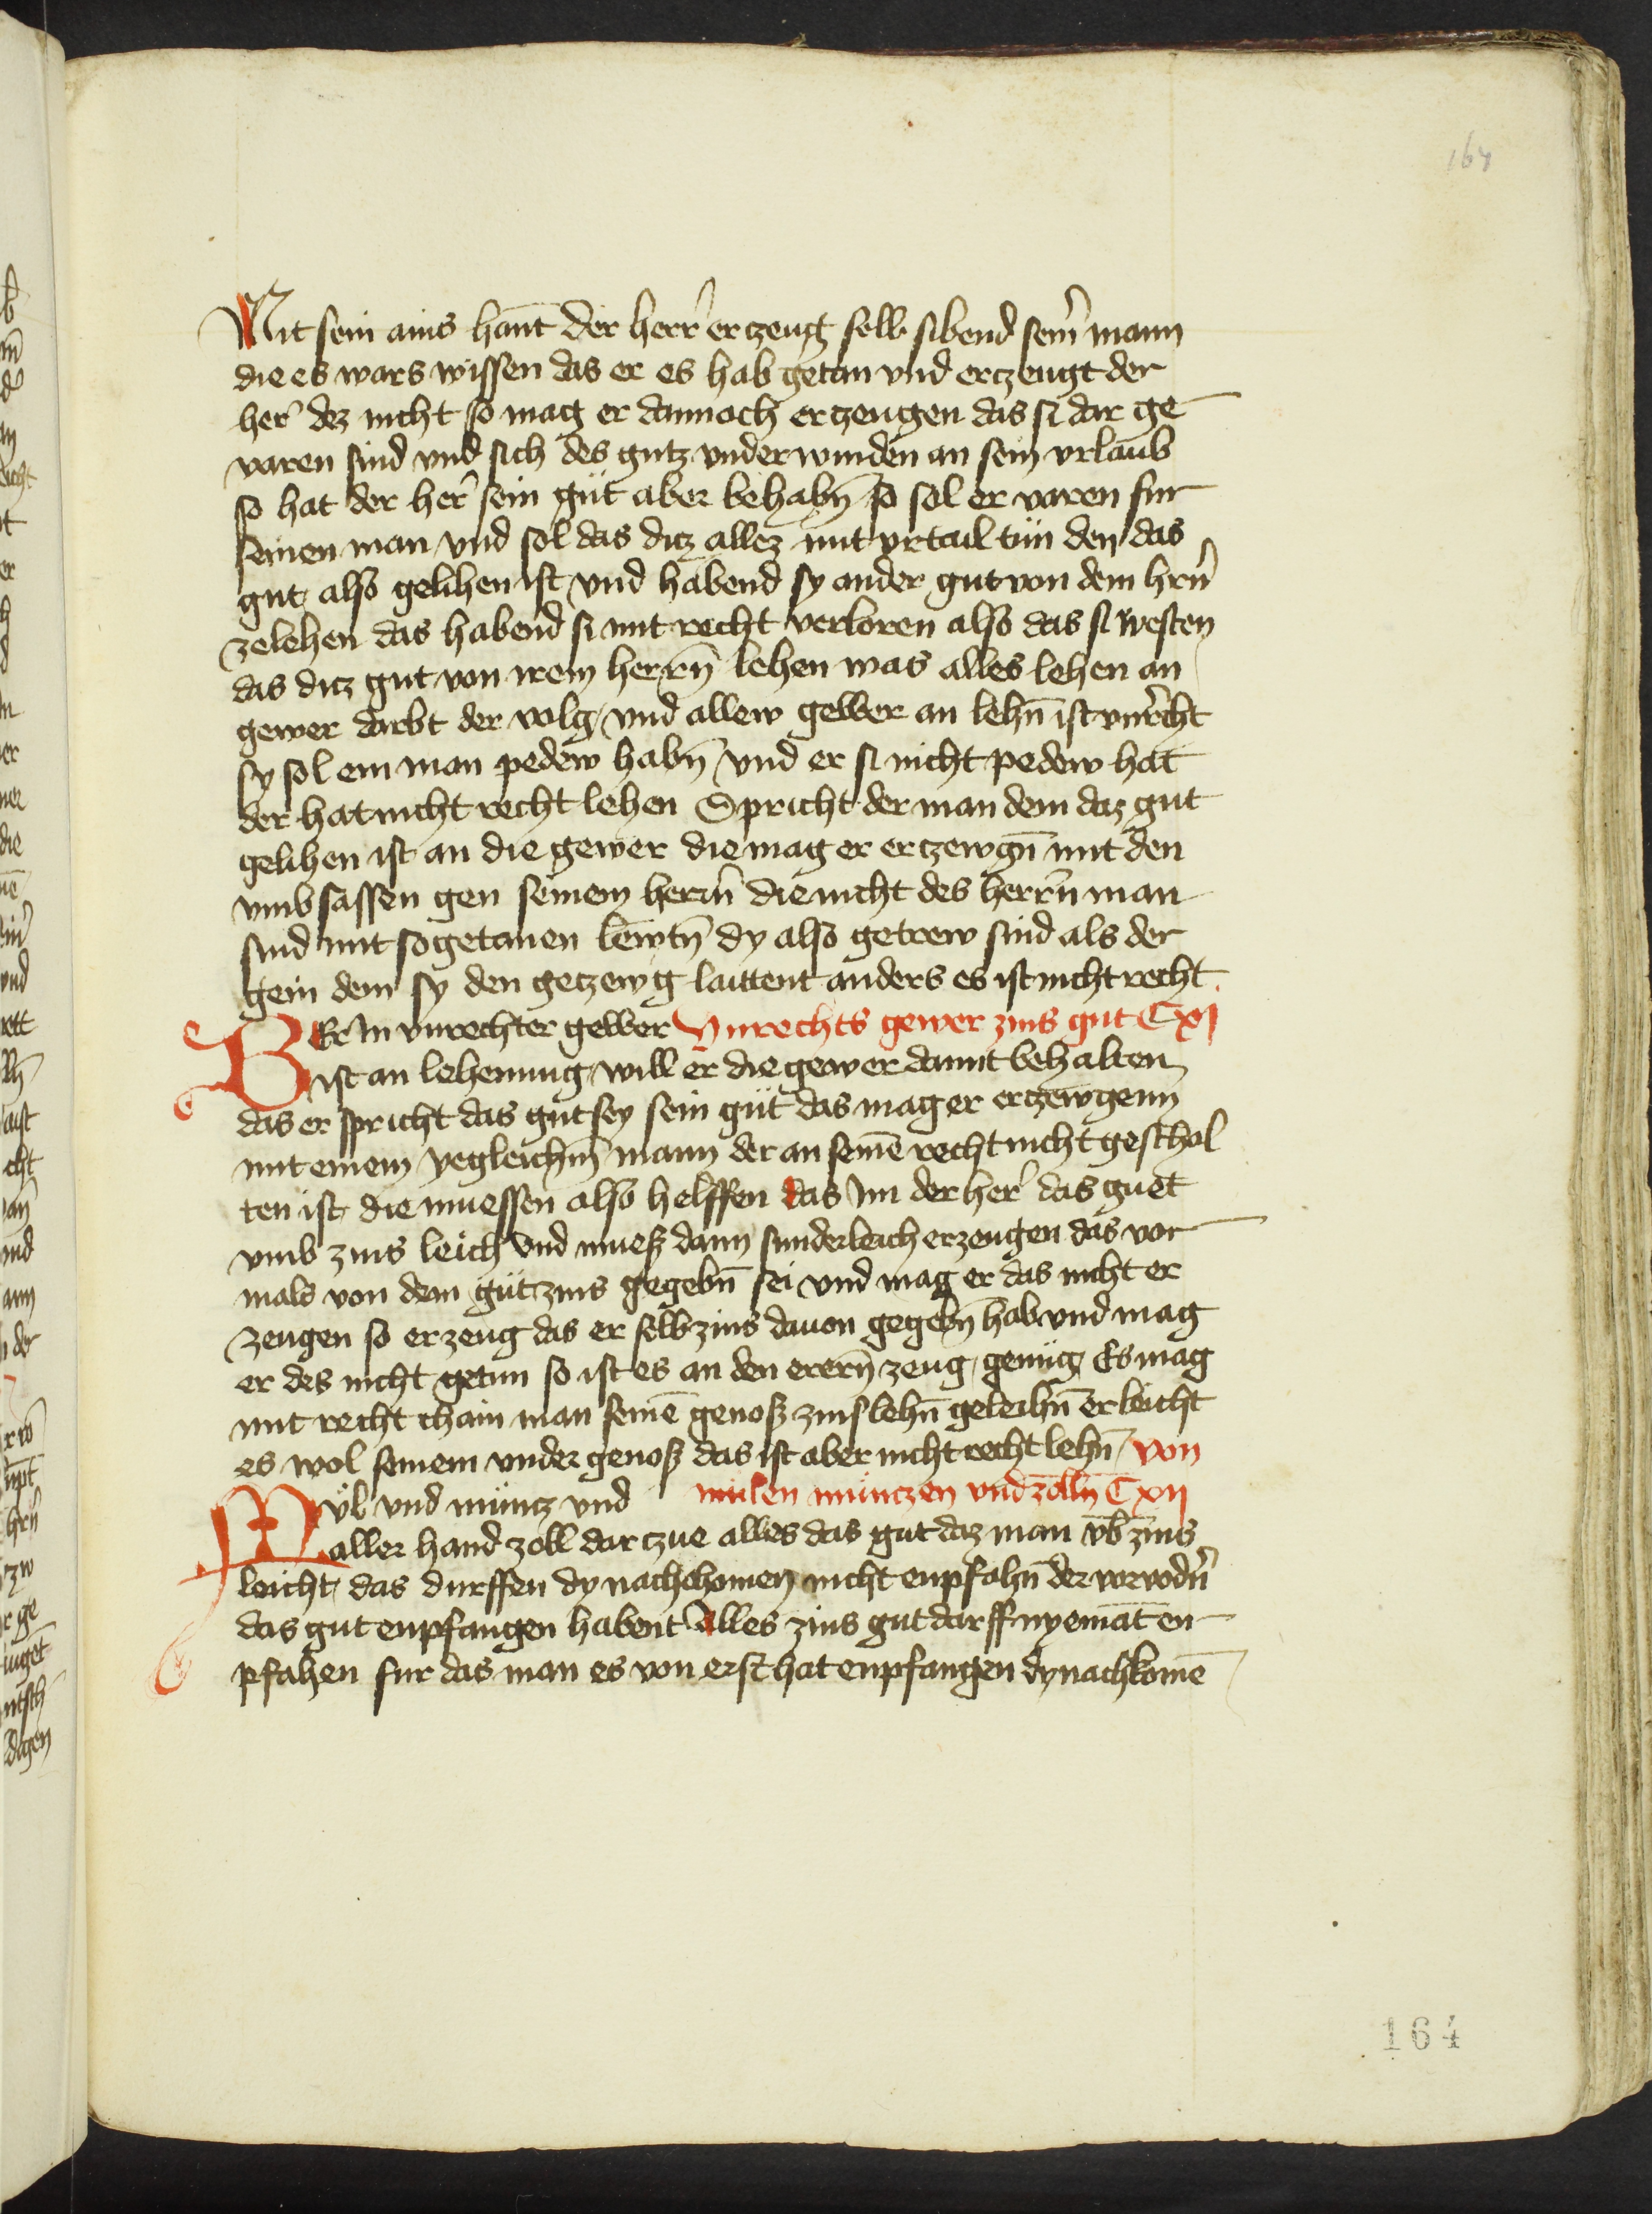 164
Mit sein ains hant̄ der herr̄ erczeug selb sibend sein̄ mann
die es wars wissen das er es hab getan vnd erczeugt der
her̄ dez nicht so mag er dannoch erczeugen das si dar ge
varen sind vnd sich des gutz vnderwunden an sein vrlaub
so hat der her̄ sein gut aber behabn̄ so sol er varen fur
seinen man vnd sol das ditz allez mit vrtail tun den das
gut also gelihen ist vnd habend sy ander gut von dem hrn̄
zelehen das habend si mit recht verloren also das si westen
das ditz gut von irem herrn̄ lehen was alles lehen an
gewer darbt der volg vnd allew gewer an lehn̄ ist vnrecht
sy sol ein man pedew habn̄ vnd er si nicht pedew hat
der hat nicht recht lehen Spricht der man dem daz gut
gelihen ist an die gewer die mag er erczewgn̄ mit den
vmbsassen gen seinem herrn̄ die nicht des herrn̄ man
sind mit sogetanen lewtn̄ dy also getrew sind als der
gein dem sy den getzewg laittent anders es ist nicht recht
Er in vnrechter gewer Vnrechts gewer zins gut Cxj
ist an lehenung will er die gewer damit behalten
das er spricht das gut sey sein gut das mag er erczewgenn
mit einem yegleichn̄ mann der an seinē recht nicht geschol
ten ist die muessen also helffen das im der her̄ das guet
vmb zins leich vnd muesz dann sunderleich erzeugen das vor
mals von dem gut zins gegebn̄ sei vnd mag er das nicht er
zeugen so erzeug das er selb zins dauon gegebn̄ hab vnd mag
er des nicht getun so ist es an den erern̄ zeug genug Es mag
mit recht chain man seinē genosz zinslehn̄ geleihn̄ er leicht
es wol seinem vndergenosz das ist aber nicht recht lehn̄ von
Mül vnd müntz vnd mulen muntzen vnd zolln̄ Cxij
aller hand zoll darczue alles das gut daz man vb̄ zins
leicht das durffen dy nachchomen nicht enpfahn̄ der vorvodn̄
das gut enpfangen habent Alles zins gut darff nyemāt en
pfahen fur das man es von erst hat enpfangen dy nachkomē
164